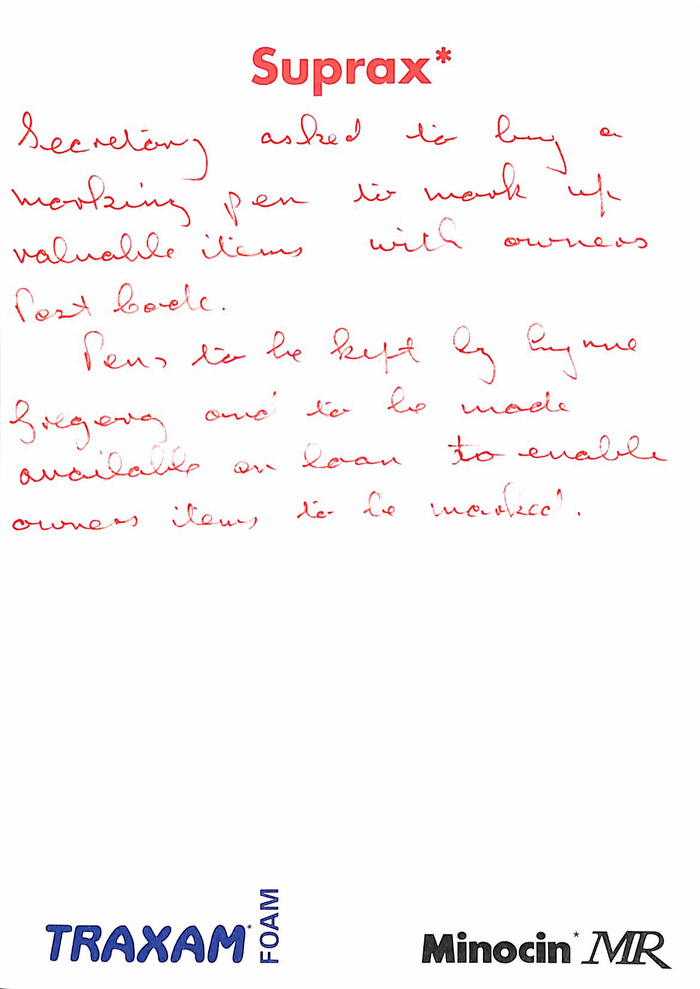 Suprax*
Secretary asked to buy a
marking pen to mark up
valuable items with owners
Post Code.
Pens to be kept by Lynne
Gregory and to be made
available on loan to enable
owners items to be marked.
TRAXAM* FOAM
Minocin* MR